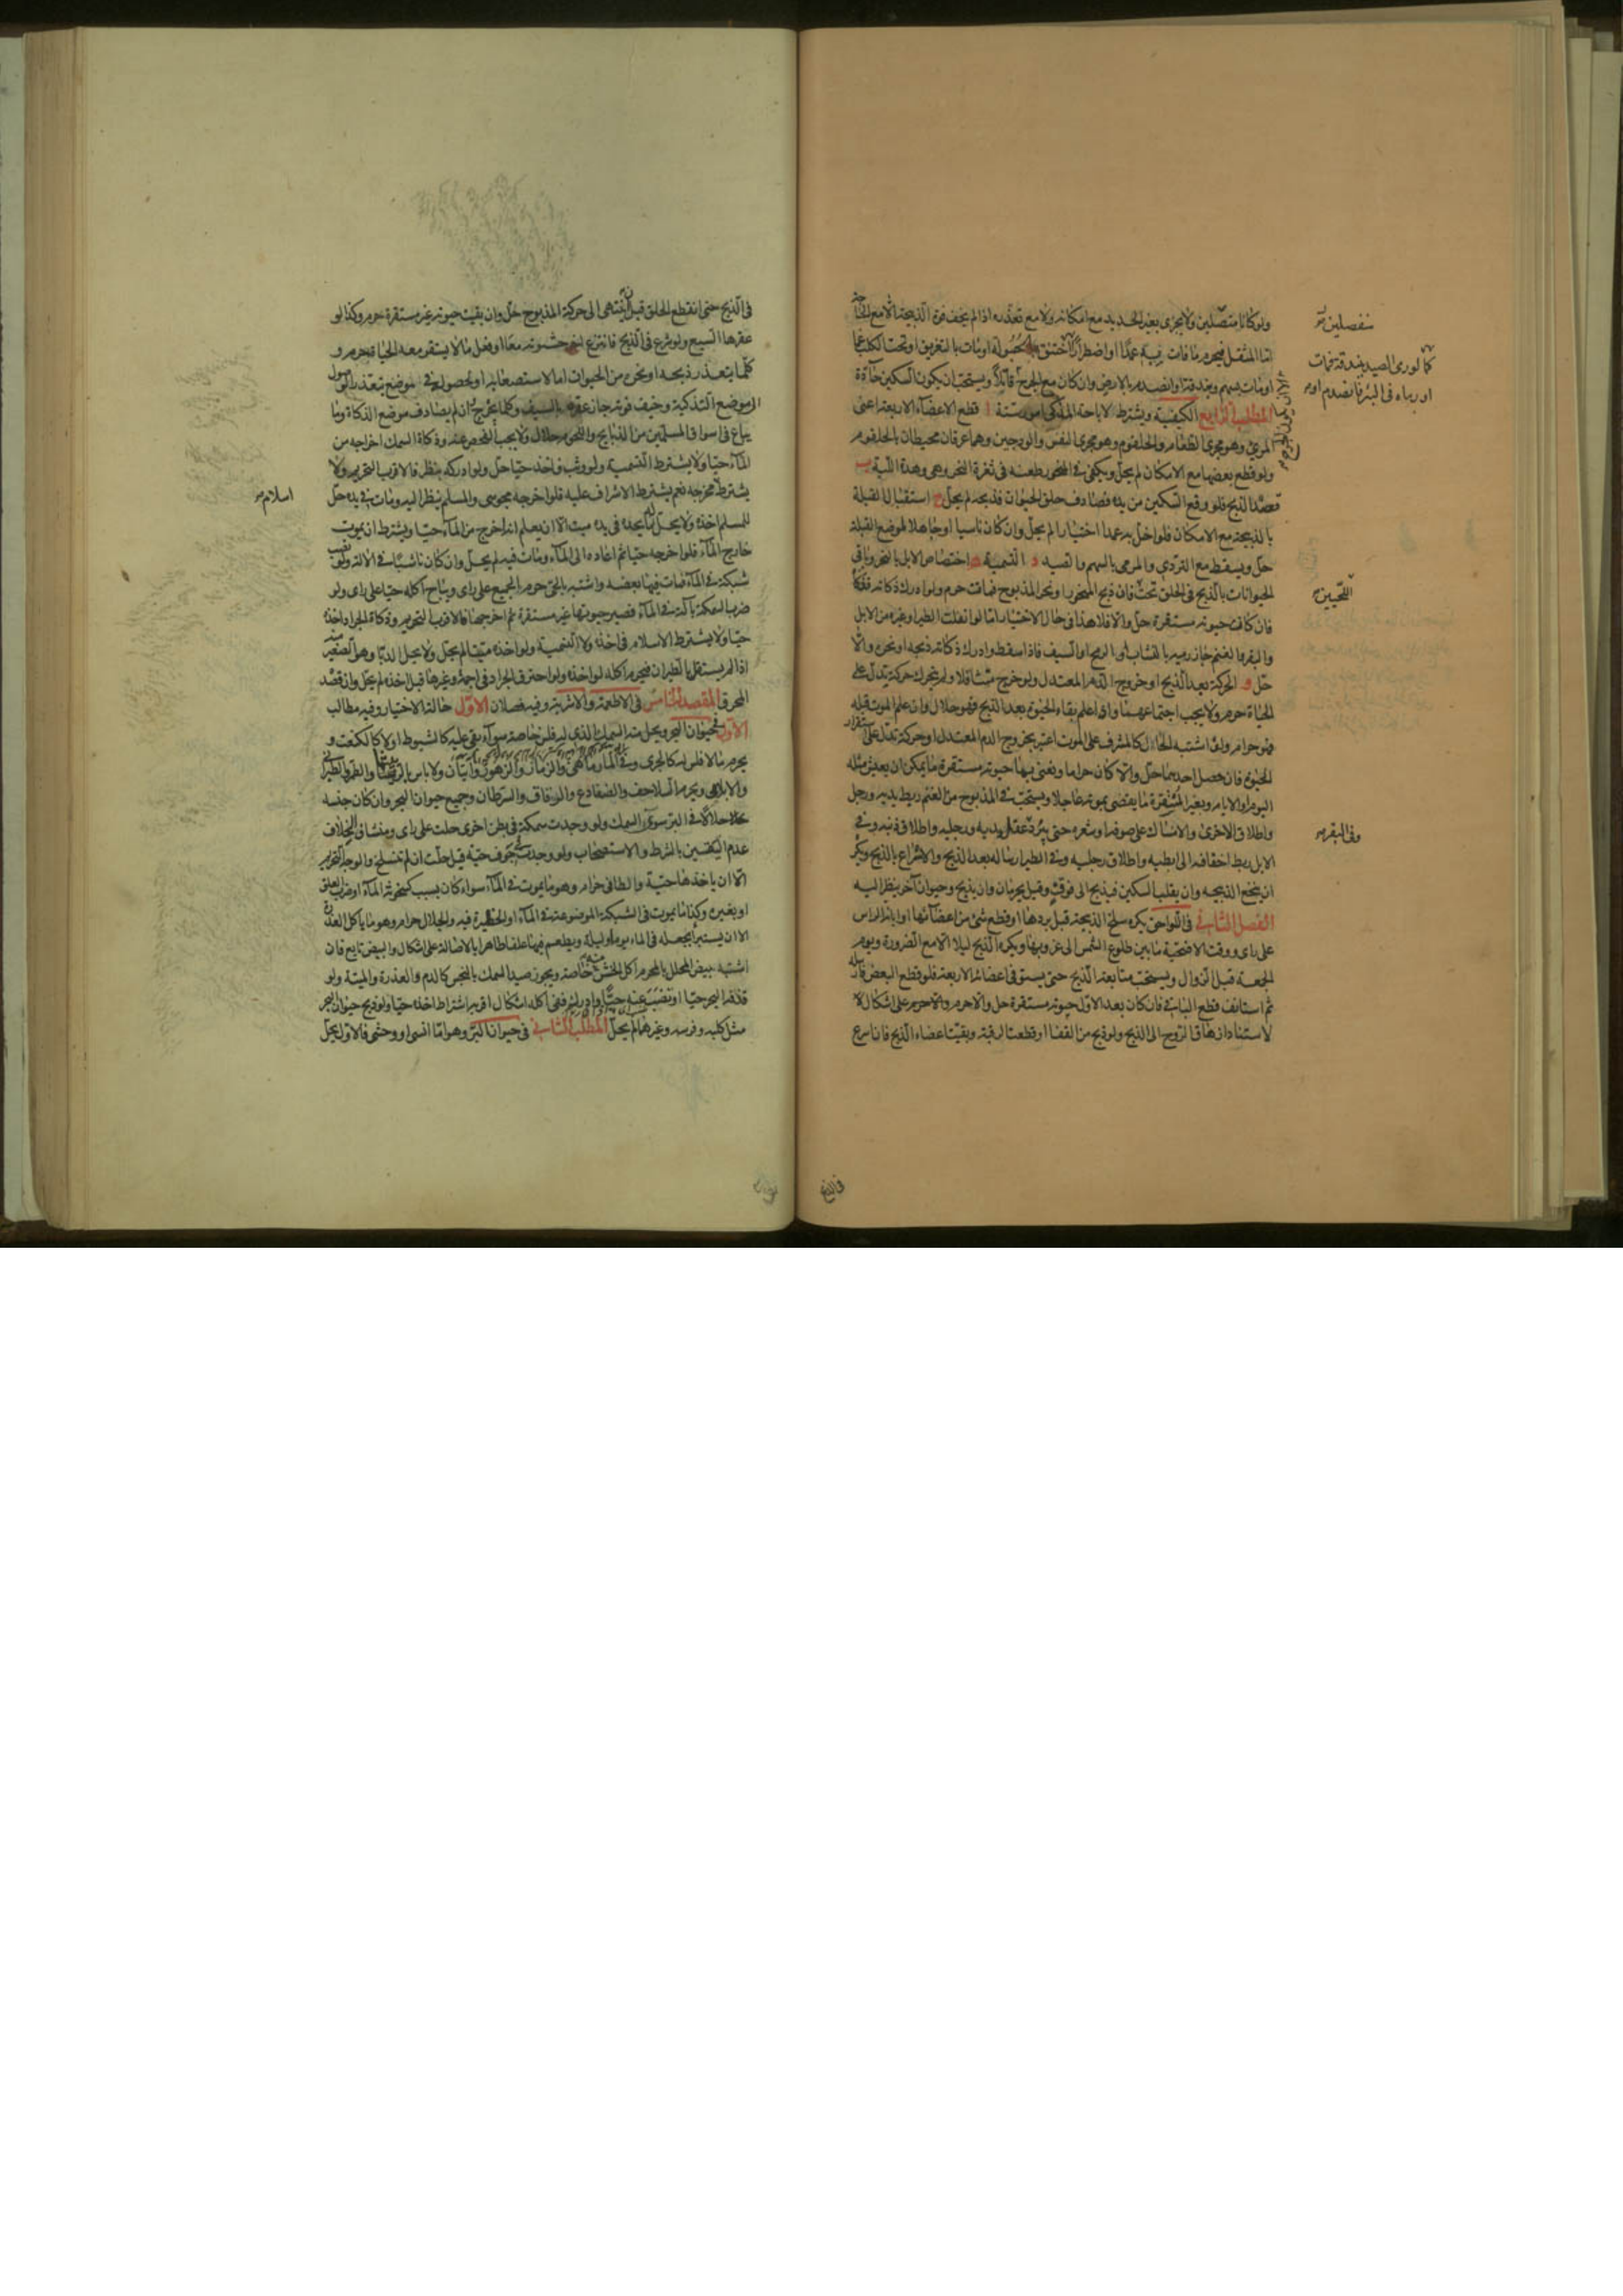 ولو كانا متصلين ولا يجزى بغير الحديد مع امكانه ولا مع تعذره اذا لم يخف فوت الذبيحة الا مع الحاجة
اما المثقل فيحرم ما مات به عمدا او اضطرارا
او مات بسهم وبندقة او انصدم بالارض وان كان مع الجرح قاتلا ويستحب ان يكون السكين حادة
المطلب الرابع الكيفية ويشترط لاباحة المذكى امور ستة ا قطع الاعضاء الاربعة اعنى
المرئ وهو مجرى الطعام والحلقوم وهو مجرى النفس والودجين وهما عرقان محيطان بالحلقوم
ولو قطع بعضها مع الامكان لم يحل ويكفى فى المنحور طعنه فى ثغرة النحر وهى وهدة اللبة ب
قصد الذبح فلو وقع السكين من يده فصادف حلق الحيوان فذبحه لم يحل ج استقبال القبلة
بالذبيحة مع الامكان فلو اخل به عمدا اختيارا لم يحل وان كان ناسيا او جاهلا لموضع القبلة
حل ويسقط مع التردى والمرمى بالسهم والصيد د التسمية ه اختصاص الابل بالنحر وباقى
الحيوانات بالذبح فى الحلق تحت فان ذبح المنحور او نحر المذبوح فمات حرم ولو ادرك ذكاته فذكاه
فان كانت حيوته مستقرة حل والا فلا هذا فى حال الاختيار اما لو انفلت الطير او غيره من الابل
والبقر والغنم جاز رميه بالنشاب او الرمح او السيف فاذا سقط وادرك ذكاته ذبحه او نحره والا
حل و الحركة بعد الذبح او خروج الدم المعتدل ولو خرج متثاقلا ولم يتحرك حركة تدل على
الحياة حرم ولا يجب اجتماعهما واذا علم بقاء الحيوة بعد الذبح فهو حلال وان علم الموت قبله
فهو حرام وان اشتبه الحال كالمشرف على الموت اعتبر بخروج الدم المعتدل او حركة تدل على استقرار
الحيوة فان حصل احدهما حل والا كان حراما ونعنى بها حيوته مستقرة ما يمكن ان يعيش مثله
اليوم او الايام وبغير المستقرة ما يقضى بموته عاجلا ويستحب فى المذبوح من الغنم ربط يديه ورجل
واطلاق الاخرى والامساك على صوفه او شعره حتى يبرد عقل يديه ورجليه واطلاق ذنبه وفى
الابل ربط اخفافه الى ابطيه واطلاق رجليه وفى الطير ارساله بعد الذبح والاسراع بالذبح ويكره
ان ينخع الذبيحه وان يقلب السكين فيذبح الى فوق وقيل يحرمان وان يذبح وحيوان آخر ينظر اليه
الفصل الثانى فى اللواحق يكره سلخ الذبيحة قبل بردها او قطع شئ من اعضائها او ابانة الراس
على راى ووقت الاضحية ما بين طلوع الشمس الى غروبها ويكره الذبح ليلا الا مع الضرورة ويوم
الجمعة قبل الزوال ويستحب متابعة الذبح حتى يستوفى اعضائه الاربعة فلو قطع البعض فارسله
ثم استانف قطع الباقى فان كان بعد الاول حيوته مستقرة حل والا حرم والا حرم على اشكال لا
لاستناد ازهاق الروح الى الذبح ولو ذبح من القفا او قطعت الرقبة وبقيت اعضاء الذبح فان اسرع
منفصلين
كما لو رمى الصيد ببندقة فمات
او رماه فى البئر فانصدم او
اللحيين
وفى البقر
فى الذبح
فى الذبح حتى انقطع الحلق قبل ان ينتهى الى حركة المذبوح حل وان بقيت حيوته غير مستقرة حرم وكذا لو
عقرها السبع ولو شرع فى الذبح فانتزع اخر حشوته معا او فعل ما لا يستقر معه الحياة حرم و
كلما يتعذر ذبحه او نحره من الحيوان اما لاستصعابه او لحصوله فى موضع يتعذر الوصول
الى موضع التذكية وخيف فوته جاز عقره بالسيف وكلما يجرح وان لم يصادف موضع الذكاة وما
يباع فى اسواق المسلمين من الذبايح واللحوم حلال ولا يجب الفحص عنه وذكاة السمك اخراجه من
الماء حيا ولا يشترط التسمية ولو وثب فاخذه حيا حل ولو ادركه بنظر فالاقرب التحريم ولا
يشترط مخرجه نعم يشترط الاشراف عليه فلو اخرجه مجوسى والمسلم ينظر اليه ومات فى يده حل
للمسلم اخذه ولا يحل ما يجده فى يده ميتا الا ان يعلم انه اخرج من الماء حيا ويشترط ان يموت
خارج الماء فلو اخرجه حيا ثم اعاده الى الماء ومات فيه لم يحل وان كان ناشبا فى الالة ولو نصب
شبكة فى الماء فمات فيها بعضه واشتبه بالحى حرم الجميع على راى ويباح اكله حيا على راى ولو
ضرب السمكة بآلة فى الماء فصير حيوتها غير مستقرة ثم اخرجها فالاقرب التحريم وذكاة الجراد اخذه
حيا ولا يشترط الاسلام فى اخذه ولا التسمية ولو اخذه ميتا لم يحل ولا يحل الدبا وهو الصغير منه
اذا لم يستقل بالطيران فيحرم اكله لو اخذه ولو احترق الجراد فى اجمة وغيرها قبل اخذه لم يحل وان قصد
المحرق المقصد الخامس فى الاطعمة والاشربة وفيه فصلان الاول حالة الاختيار وفيه مطالب
الاول حيوان البحر ويحل منه السمك الذى له فلس خاصة سواء بقى عليه كالشبوط او لا كالكنعت و
يحرم ما لا فلس له كالجرى وفى المارماهى والزمار والزهو روايتان ولا باس بالربيثا والطمر والطبرانى
والابلامى ويحرم السلاحف والضفادع والرقاق والسرطان وجميع حيوان البحر وان كان جنسه
حلالا فى البر سوى السمك ولو وجدت سمكة فى بطن اخرى حلت على راى ومنشا الخلاف
عدم اليقين بالشرط والاستصحاب ولو وجدت فى جوف حية قيل حلت ان لم تنسلخ والوجه التحريم
الا ان ياخذها حية والطافى حرام وهو ما يموت فى الماء سواء كان بسبب كسخونة الماء او ضرب العلق
او بغيره وكذا ما يموت فى الشبكة الموضوعة فى الماء او الحظيرة فيه والجلال حرام وهو ما ياكل العذرة
الا ان يستبرأ بجعله فى الماء يوما وليلة ويطعم فيها علفا طاهرا بالاصالة على اشكال والبيض تابع فان
اشتبه بيض المحلل بالمحرم اكل الخشن منه خاصة ويجوز صيد السمك بالنجس كالدم والعذرة والميتة ولو
قذفه البحر حيا او نضب عنه حيا وادرك ففى اكله اشكال اقربه اشتراط اخذه حيا ولو ذبح حيوان البحر
مثل كلبه وفرسه وغيرهما لم يحل المطلب الثانى فى حيوان البر وهو اما انسى او وحشى فالاول يحل
اسلام